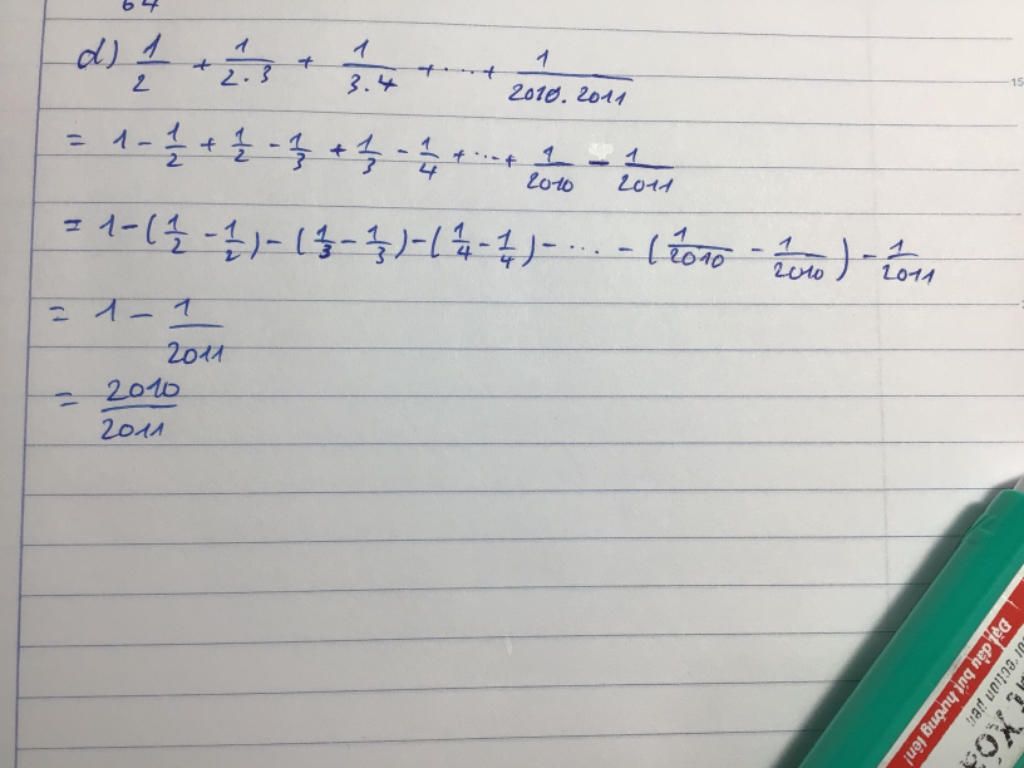 64
d) 1/2 + 1/2.3 + 1/3.4 + ... + 1/2010.2011
= 1 - 1/2 + 1/2 - 1/3 + 1/3 - 1/4 + ... + 1/2010 - 1/2011
= 1 - (1/2 - 1/2) - (1/3 - 1/3) - (1/4 - 1/4) - .... - (1/2010 - 1/2010) - 1/2011
= 1 - 1/2011
= 2010/2011
15
Đặt đầu bút hướng lên!